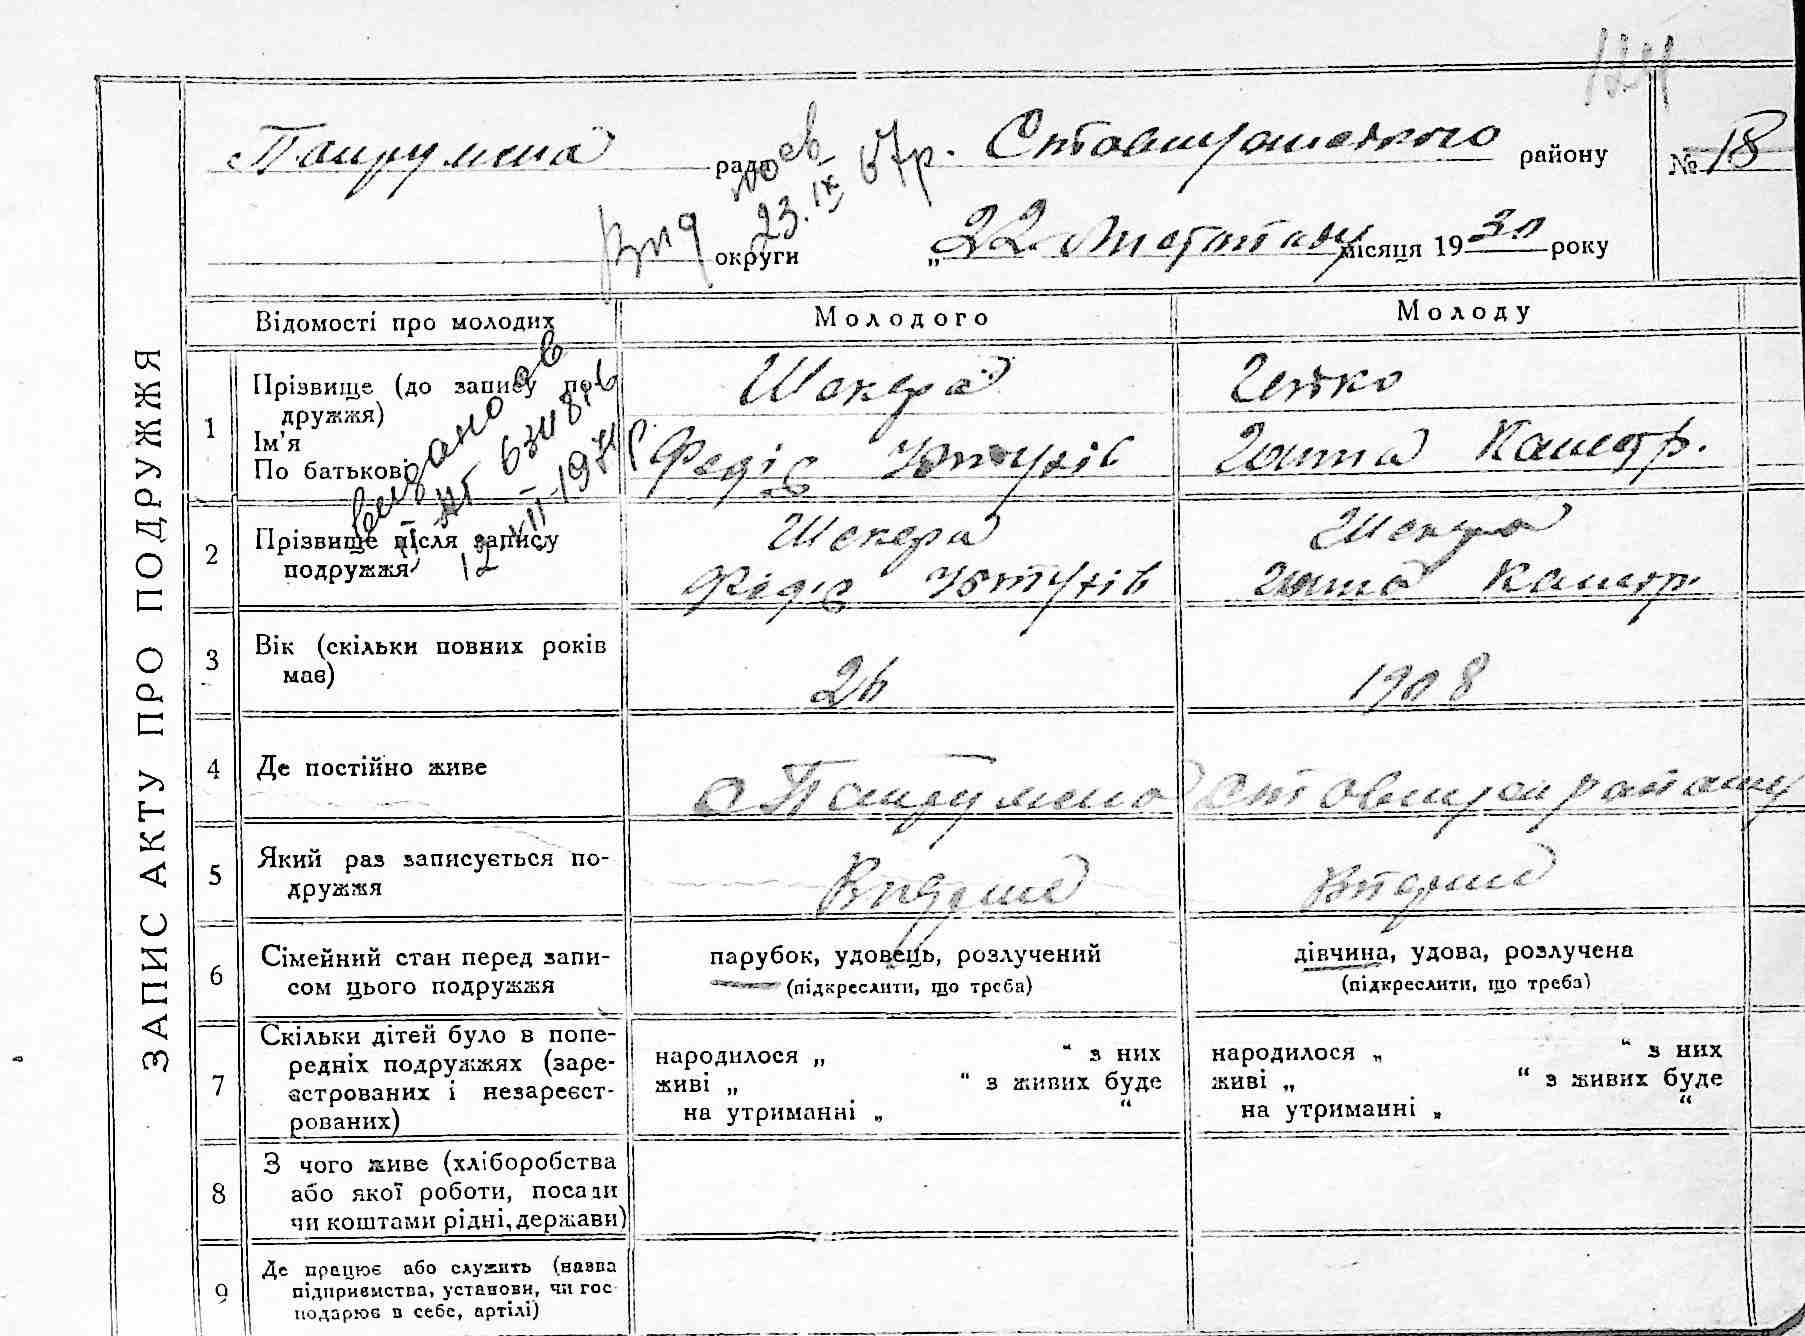 124
рада Ставищанского району № 18
округи „22 листопаду місяця 1930 року
23.IX 57р.
ЗАПИС АКТУ ПРО ПОДРУЖЖЯ
Відомості про молодих Молодого Молоду
1 Прізвище (до запису подружжя) Шекера
Ім'я
По батькові Федір Калентр.
2 Прізвище після запису подружжя Шекера Шекера
12.XII-1971р.
3 Вік (скільки повних років має) 26 1908
4 Де постійно живе
5 Який раз записується подружжя Вперше Вперше
6 Сімейний стан перед записом цього подружжя парубок, удовець, розлучений дівчина, удова, розлучена
(підкреслити, що треба) (підкреслити, що треба)
7 Скільки дітей було в попередніх подружжях (зареєстрованих і незареєстрованих)
народилося „ “ з них народилося „ “ з них
живі „ “ з живих буде живі „ “ з живих буде
на утриманні „ “ на утриманні „ “
8 З чого живе (хліборобства
або якої роботи, посади
чи коштами рідні, держави)
9 Де працює або служить (назва
підприємства, установи, чи гос-
подарює в себе, артілі)